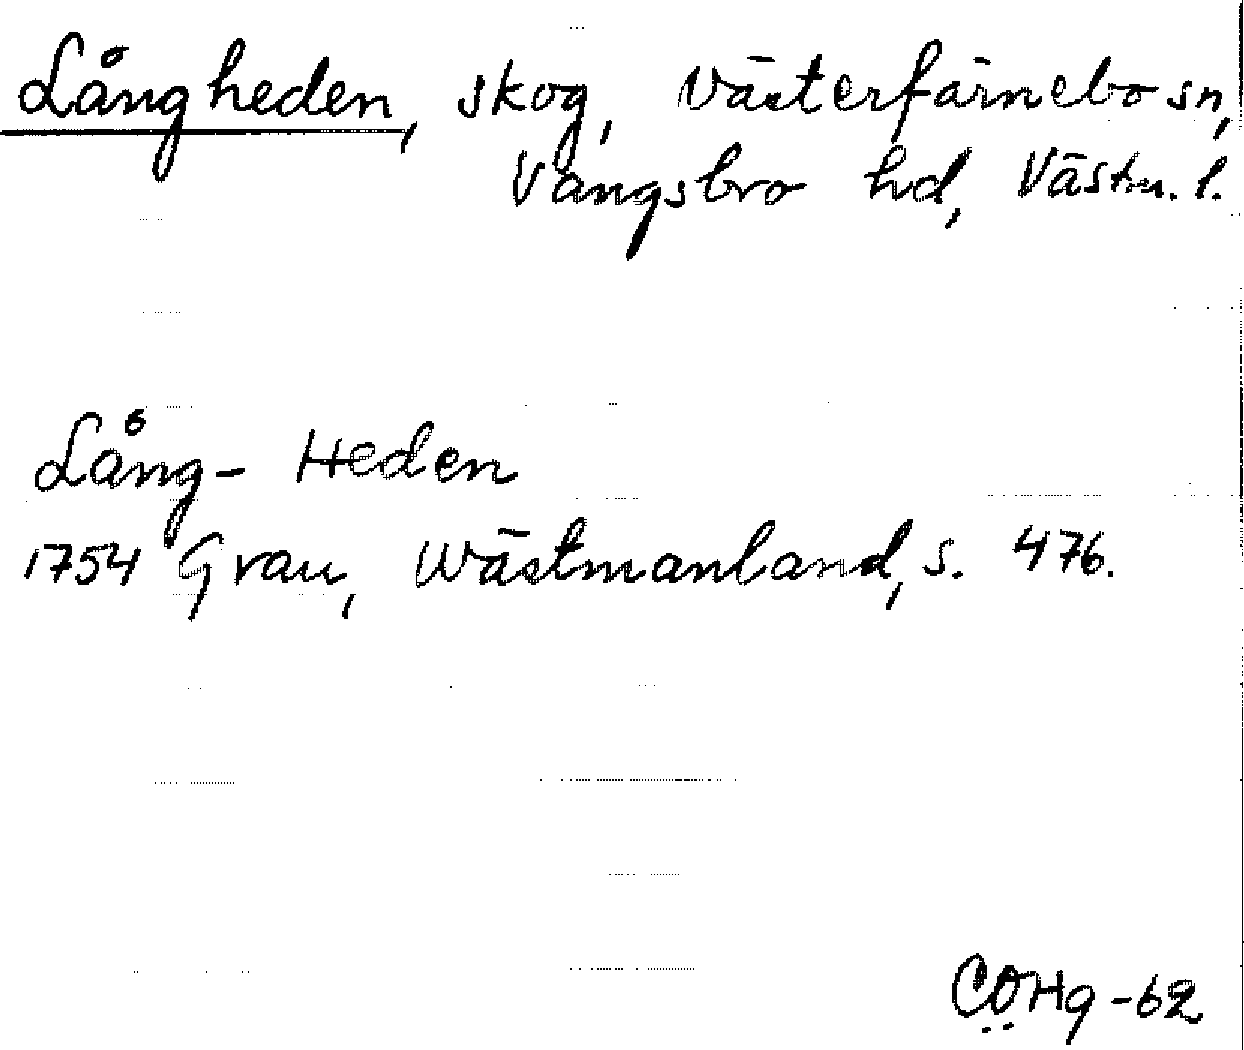 Långheden, skog, Västerfärnebo sn,
Vangsbro hd, Västm. l.
Lång- Heden
1754 Grau, Wästmanland, s. 476.
CÖHg -62